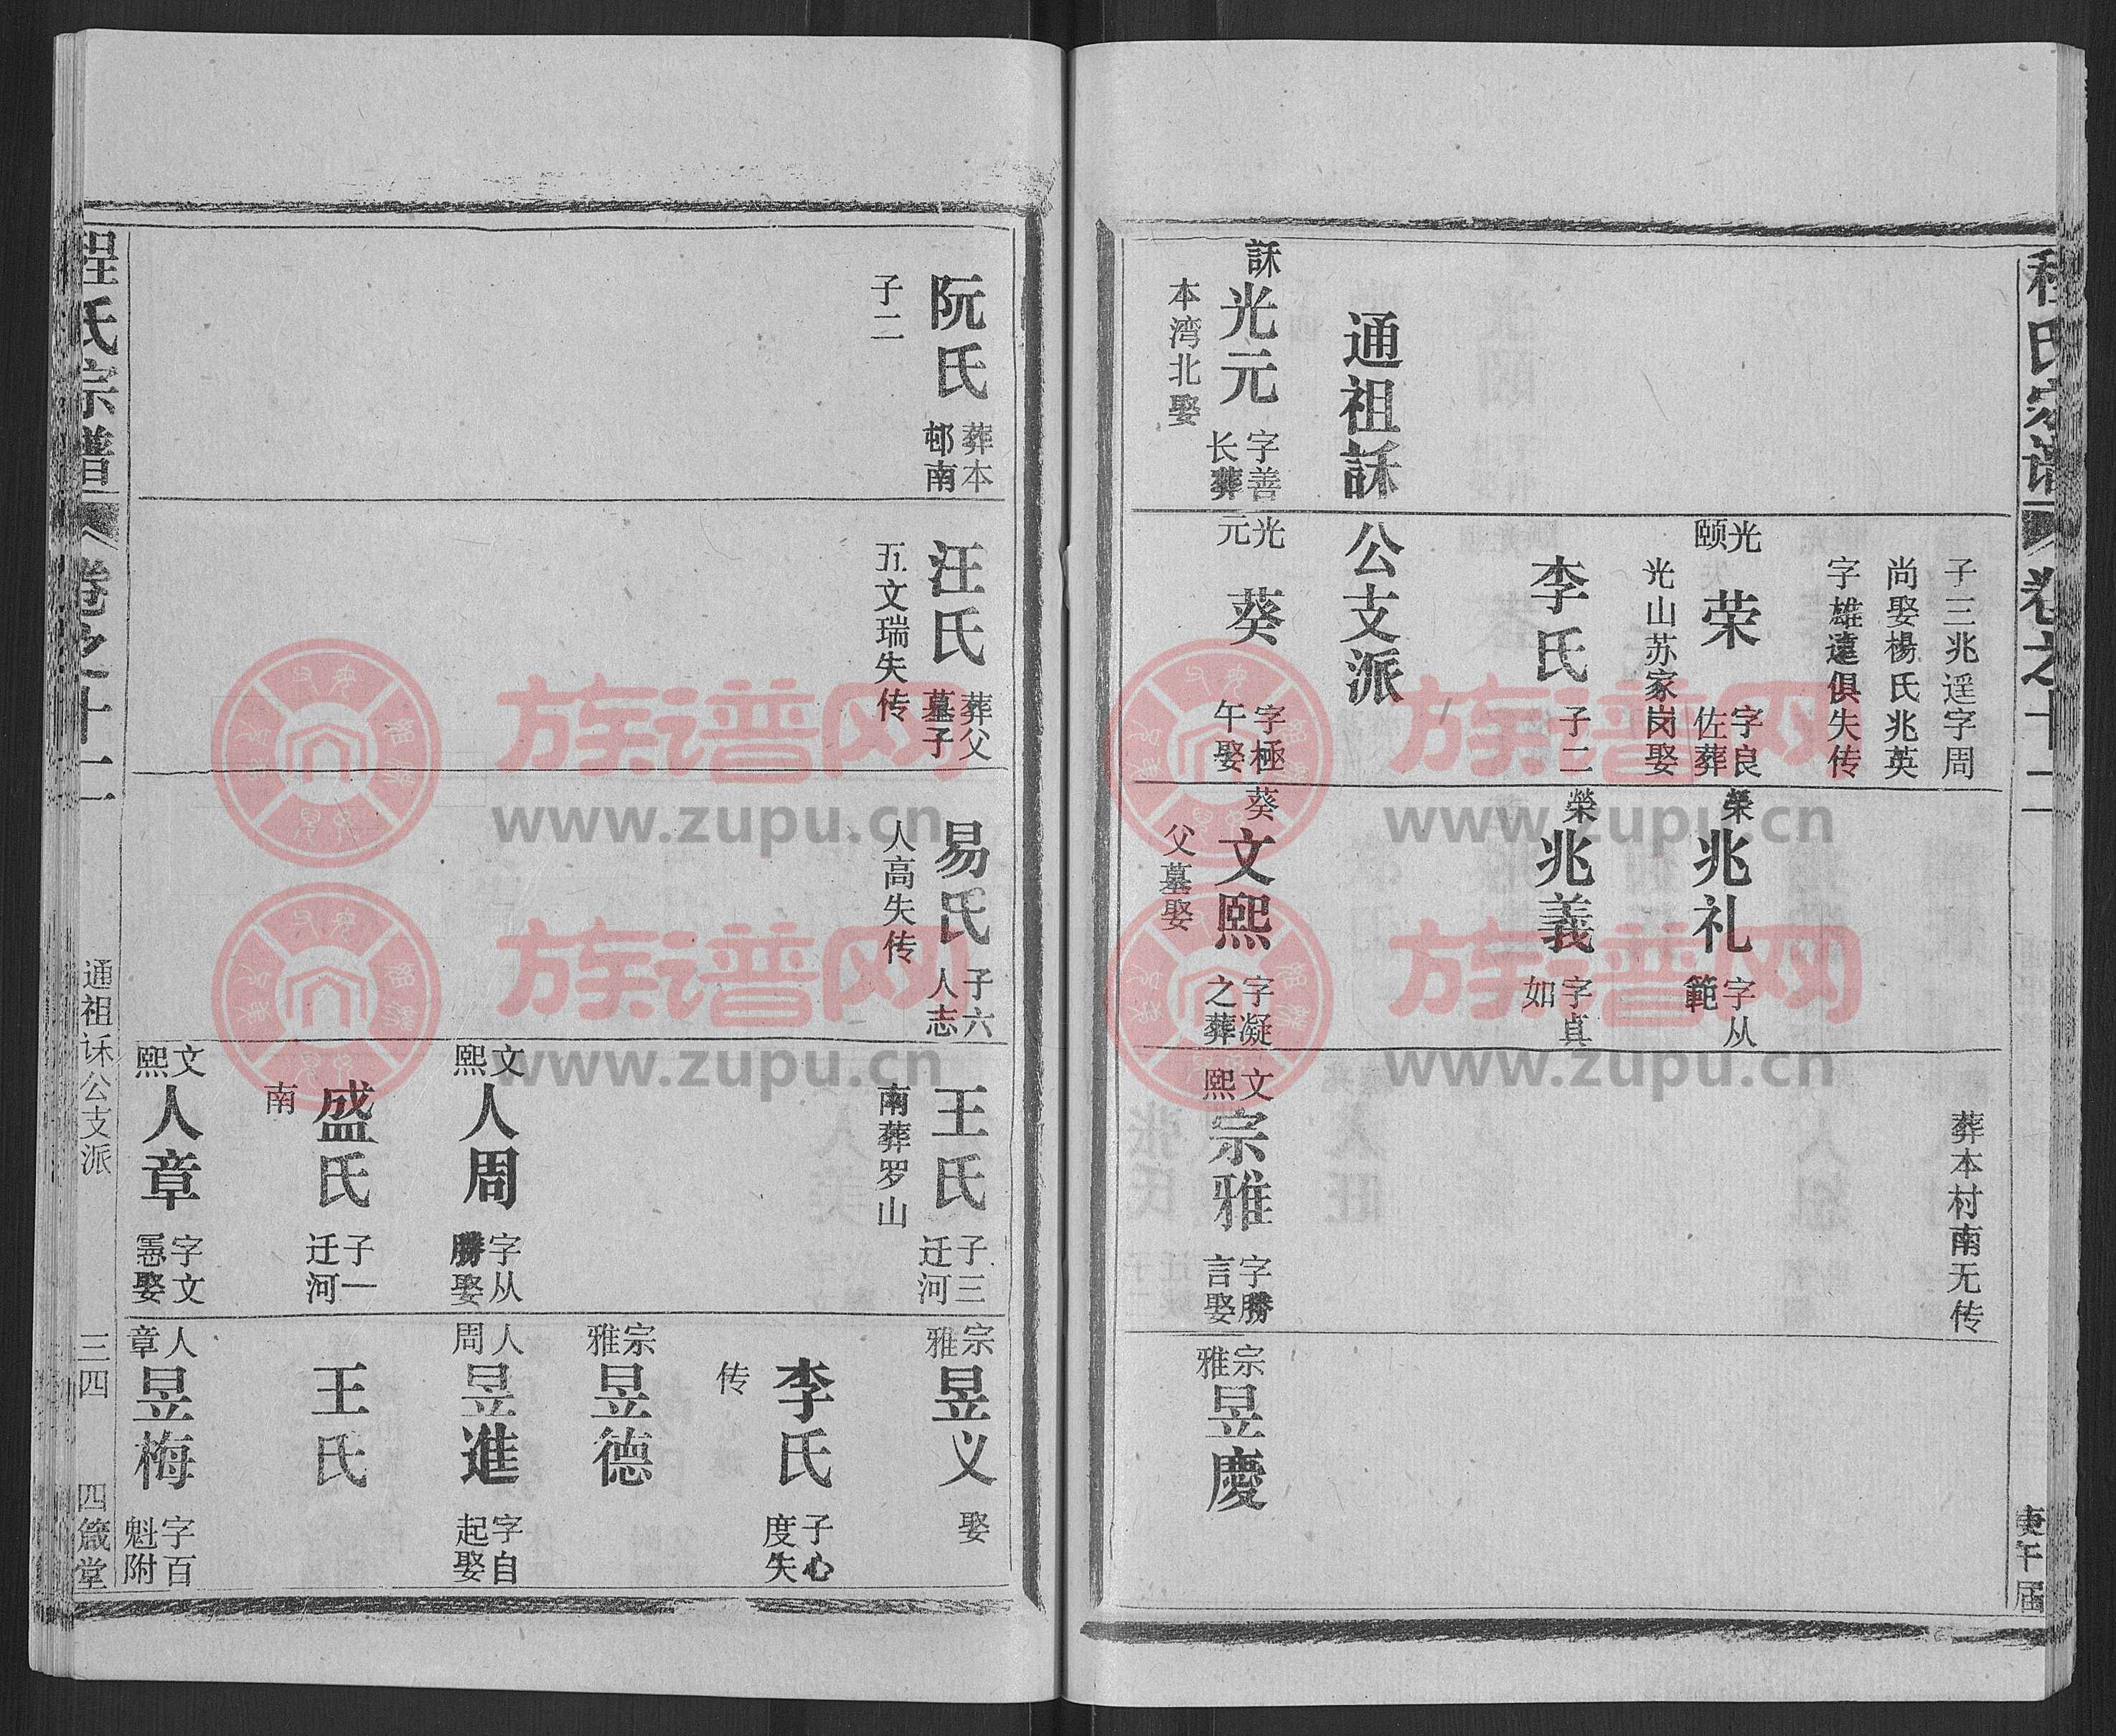 程氏宗谱
卷之十二
庚午届
子三兆遥字周
尚娶楊氏兆英
字雄遠俱失传
光颐
荣
字良佐葬
光山苏家岗娶
李氏
子二
榮
兆礼
字从範
榮
兆義
字真如
葬本村南无传
通祖訸公支派
訸
光元
字善长葬
本湾北娶
光元
葵
字極午娶
葵
文熙
字凝之葬
父墓娶
文熙
宗雅
字勝言娶
宗雅
昱慶
阮氏
葬本邨南
子二
汪氏
葬父墓子
五文瑞失传
易氏
子六人志
人高失传
王氏
子三迁河
南葬罗山
文熙
人周
字从勝娶
盛氏
子一迁河
南
文熙
人章
字文慐娶
宗雅
昱义
娶
李氏
子心度失
传
宗雅
昱德
人周
昱進
字自起娶
王氏
人章
昱梅
字百魁附
程氏宗譜
卷之十二
通祖訸公支派
三四
四箴堂
族谱网
www.zupu.cn
族谱网
www.zupu.cn
族谱网
www.zupu.cn
族谱网
www.zupu.cn